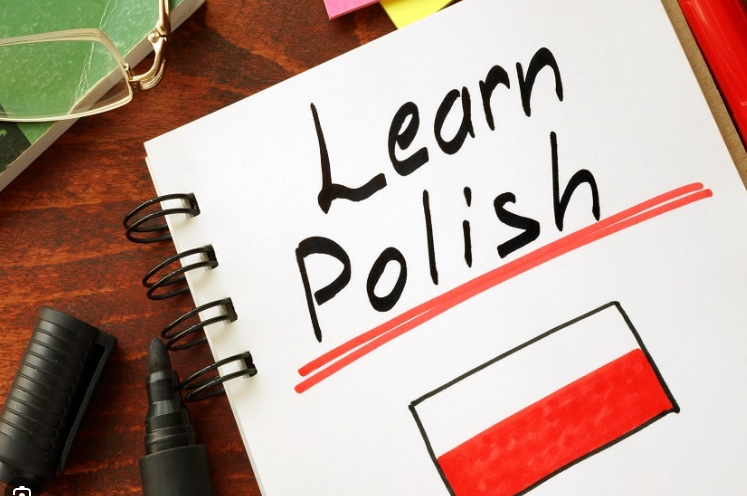 Learn
Polish